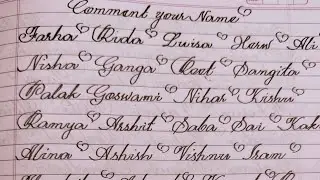 Comment your Name
Farha Rida Luisa Harw Ali
Nisha Ganga Root Sangita
Palak Goswami Nihar Kishu
Ramya Arshit Saba Sai Kak
Alina Ashish Vishnu Iram